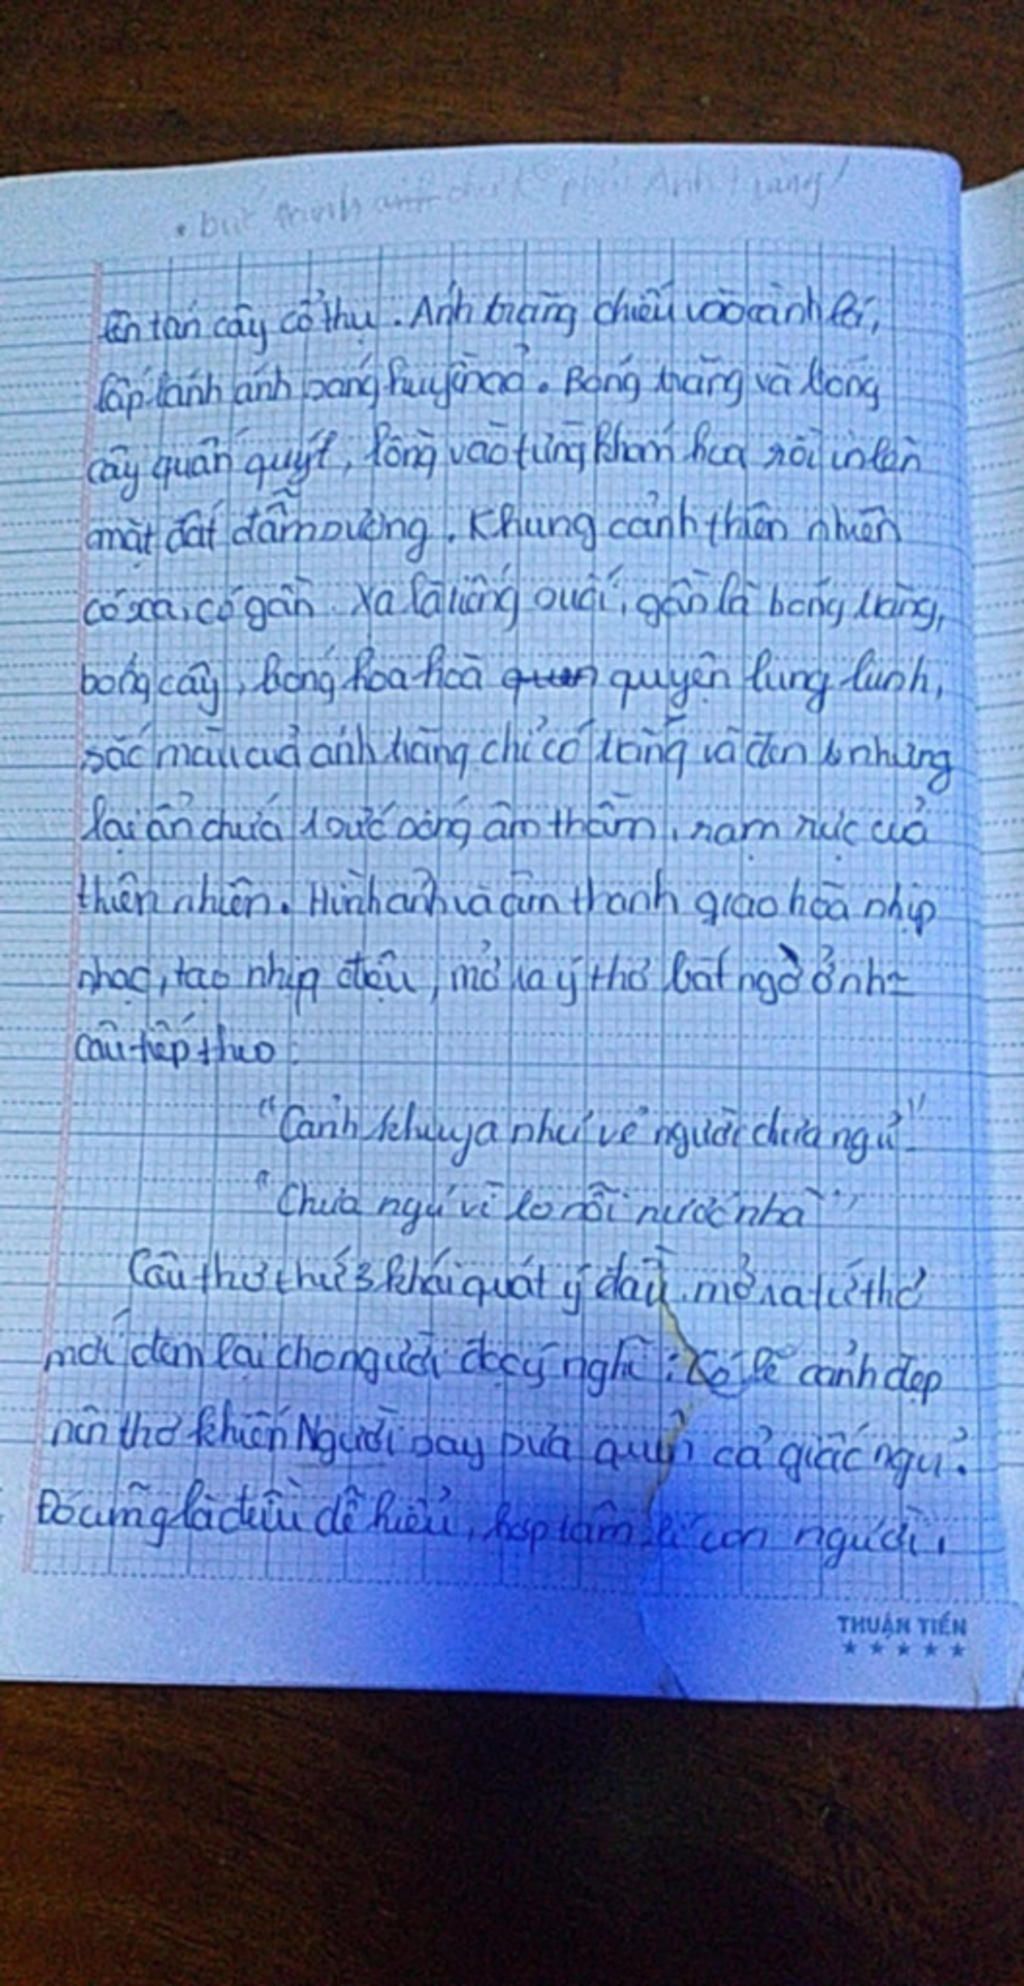 bút
lên tán cây cổ thụ. Ánh trăng chiếu vào cành lá,
lấp lánh ánh sáng huyền ảo. Bóng trăng và bóng
cây quấn quýt, lồng vào từng khóm hoa rồi in lên
mặt đất đẫm sương. Khung cảnh thiên nhiên
có xa, có gần. Xa là tiếng suối, gần là bóng trăng,
bóng cây, bóng hoa hoà quyện lung linh,
sắc màu của ánh trăng chỉ có trắng và đen nhưng
lại ẩn chứa sức sống âm thầm, rạo rực của
thiên nhiên. Hình ảnh và âm thanh giao hoà nhịp
nhạc, tạo nhịp điệu, mở ra ý thơ bất ngờ ở
câu tiếp theo:
"Cảnh khuya như vẽ người chưa ngủ"
"Chưa ngủ vì lo nỗi nước nhà"
Câu thơ thứ 3 khái quát ý đầu, mở ra tứ thơ
mới đem lại cho người đọc ý nghĩ: Có lẽ cảnh đẹp
nên thơ khiến Người say sưa quên cả giấc ngủ.
Đó cũng là điều dễ hiểu, hợp tâm lí con người,
THUẬN TIẾN